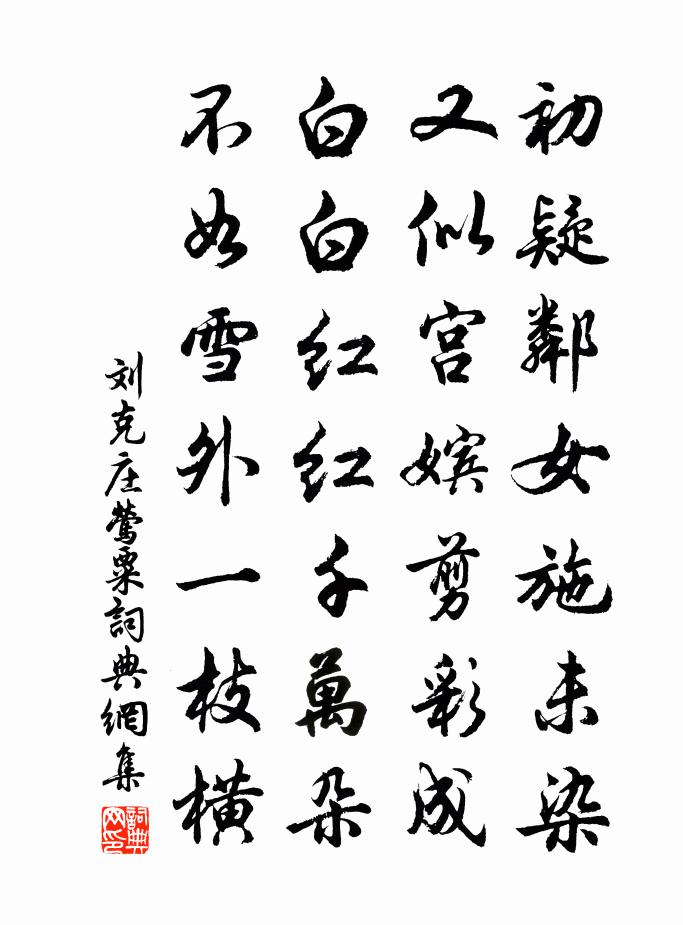 初疑鄰女施未染
又似宮嬪剪彩成
白白紅紅千萬朵
不如雪外一枝橫
刘克庄鶯粟詞典網集
詞典网印